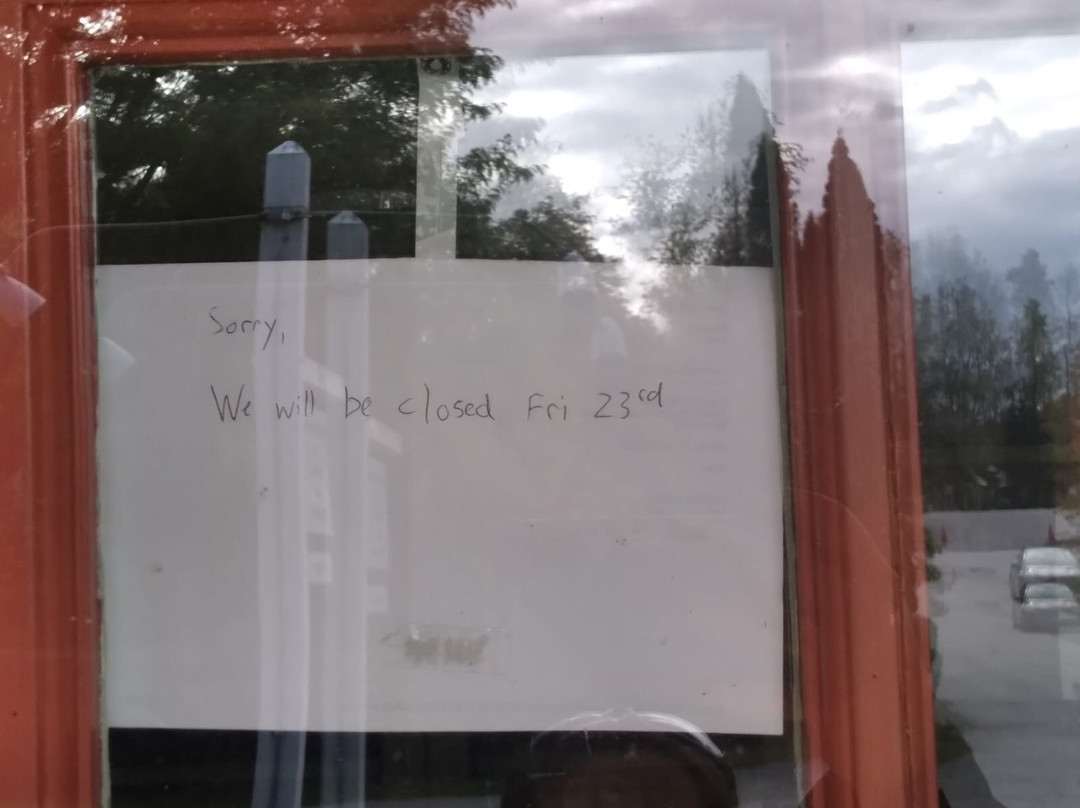 Sorry,
We will be closed Fri 23rd